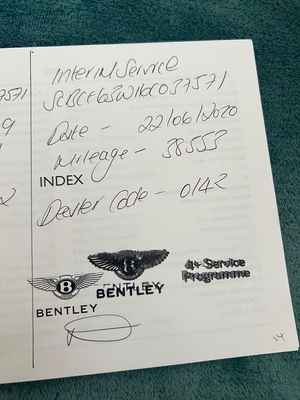 7571
9
Interim Service
SCBCF63W16C037571
Date - 22/06/2020
Mileage - 38553
INDEX
Dealer Code - 0142
BENTLEY
BENTLEY
4+ Service
Programme
14